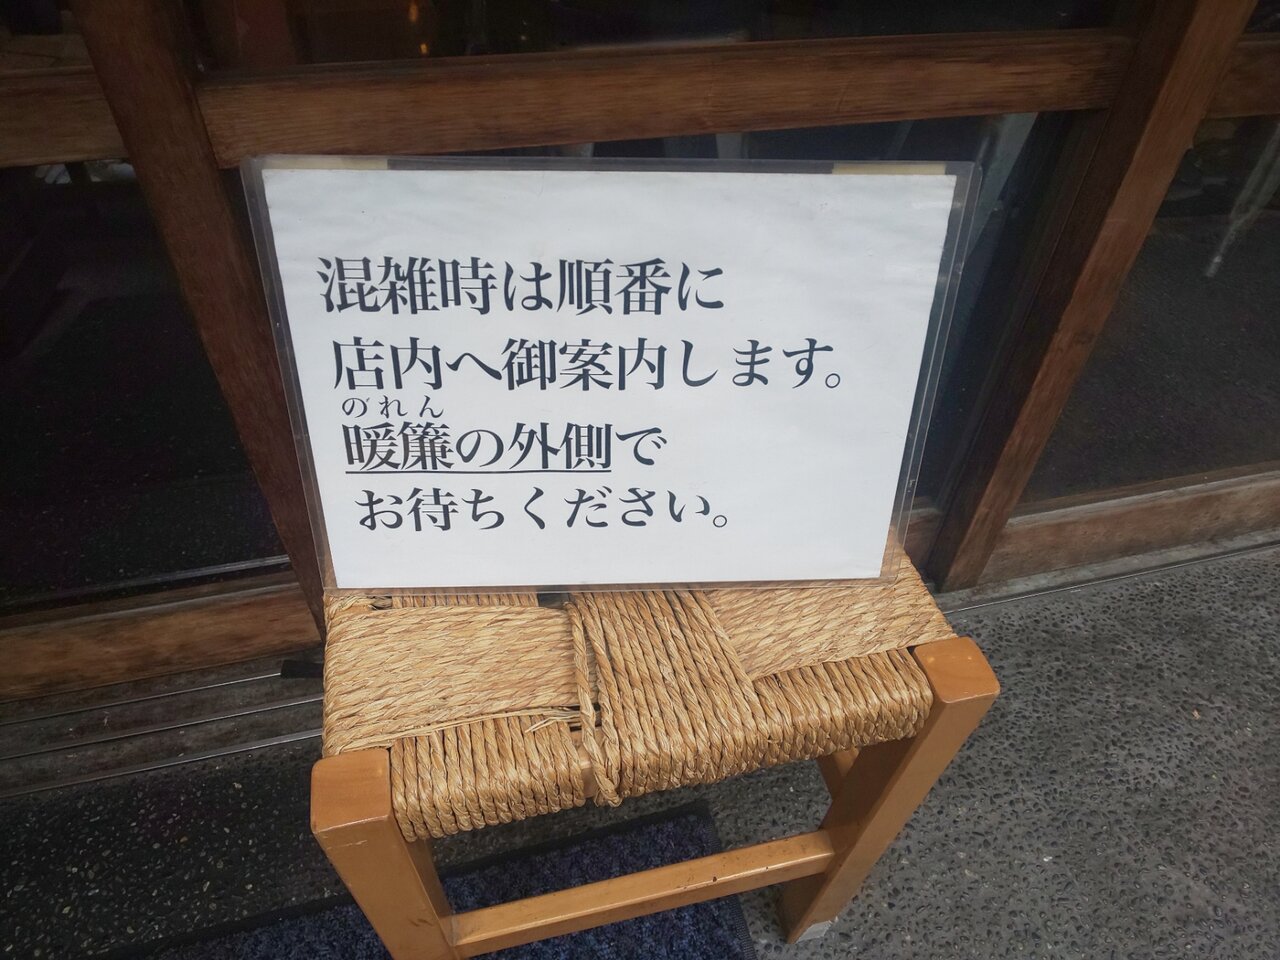 混雑時は順番に
店内へ御案内します。
のれん
暖簾の外側で
お待ちください。